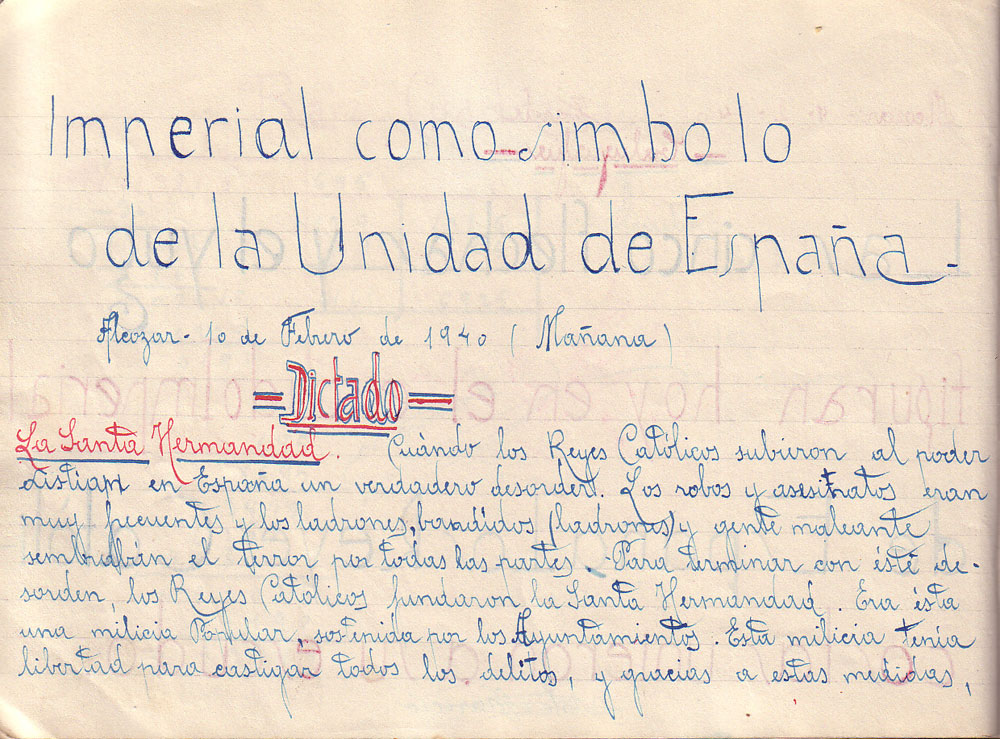 Imperial como simbolo
de la Unidad de España.
Alcozar - 10 de Febrero de 1940 (Mañana)
= Dictado =
La Santa Hermandad. Cuándo los Reyes Católicos subieron al poder
distian en España un verdadero desorden. Los robos y asesinatos eran
muy frecuentes y los ladrones, bandidos (ladrones) y gente maleante
sembrabán el terror por todas las partes. Para terminar con ésté de-
sorden, los Reyes Católicos fundaron la Santa Hermandad. Era ésta
una milicia Popular, sostenida por los Ayuntamientos. Esta milicia tenía
libertad para castigar todos los delitos, y gracias a estas medidas,